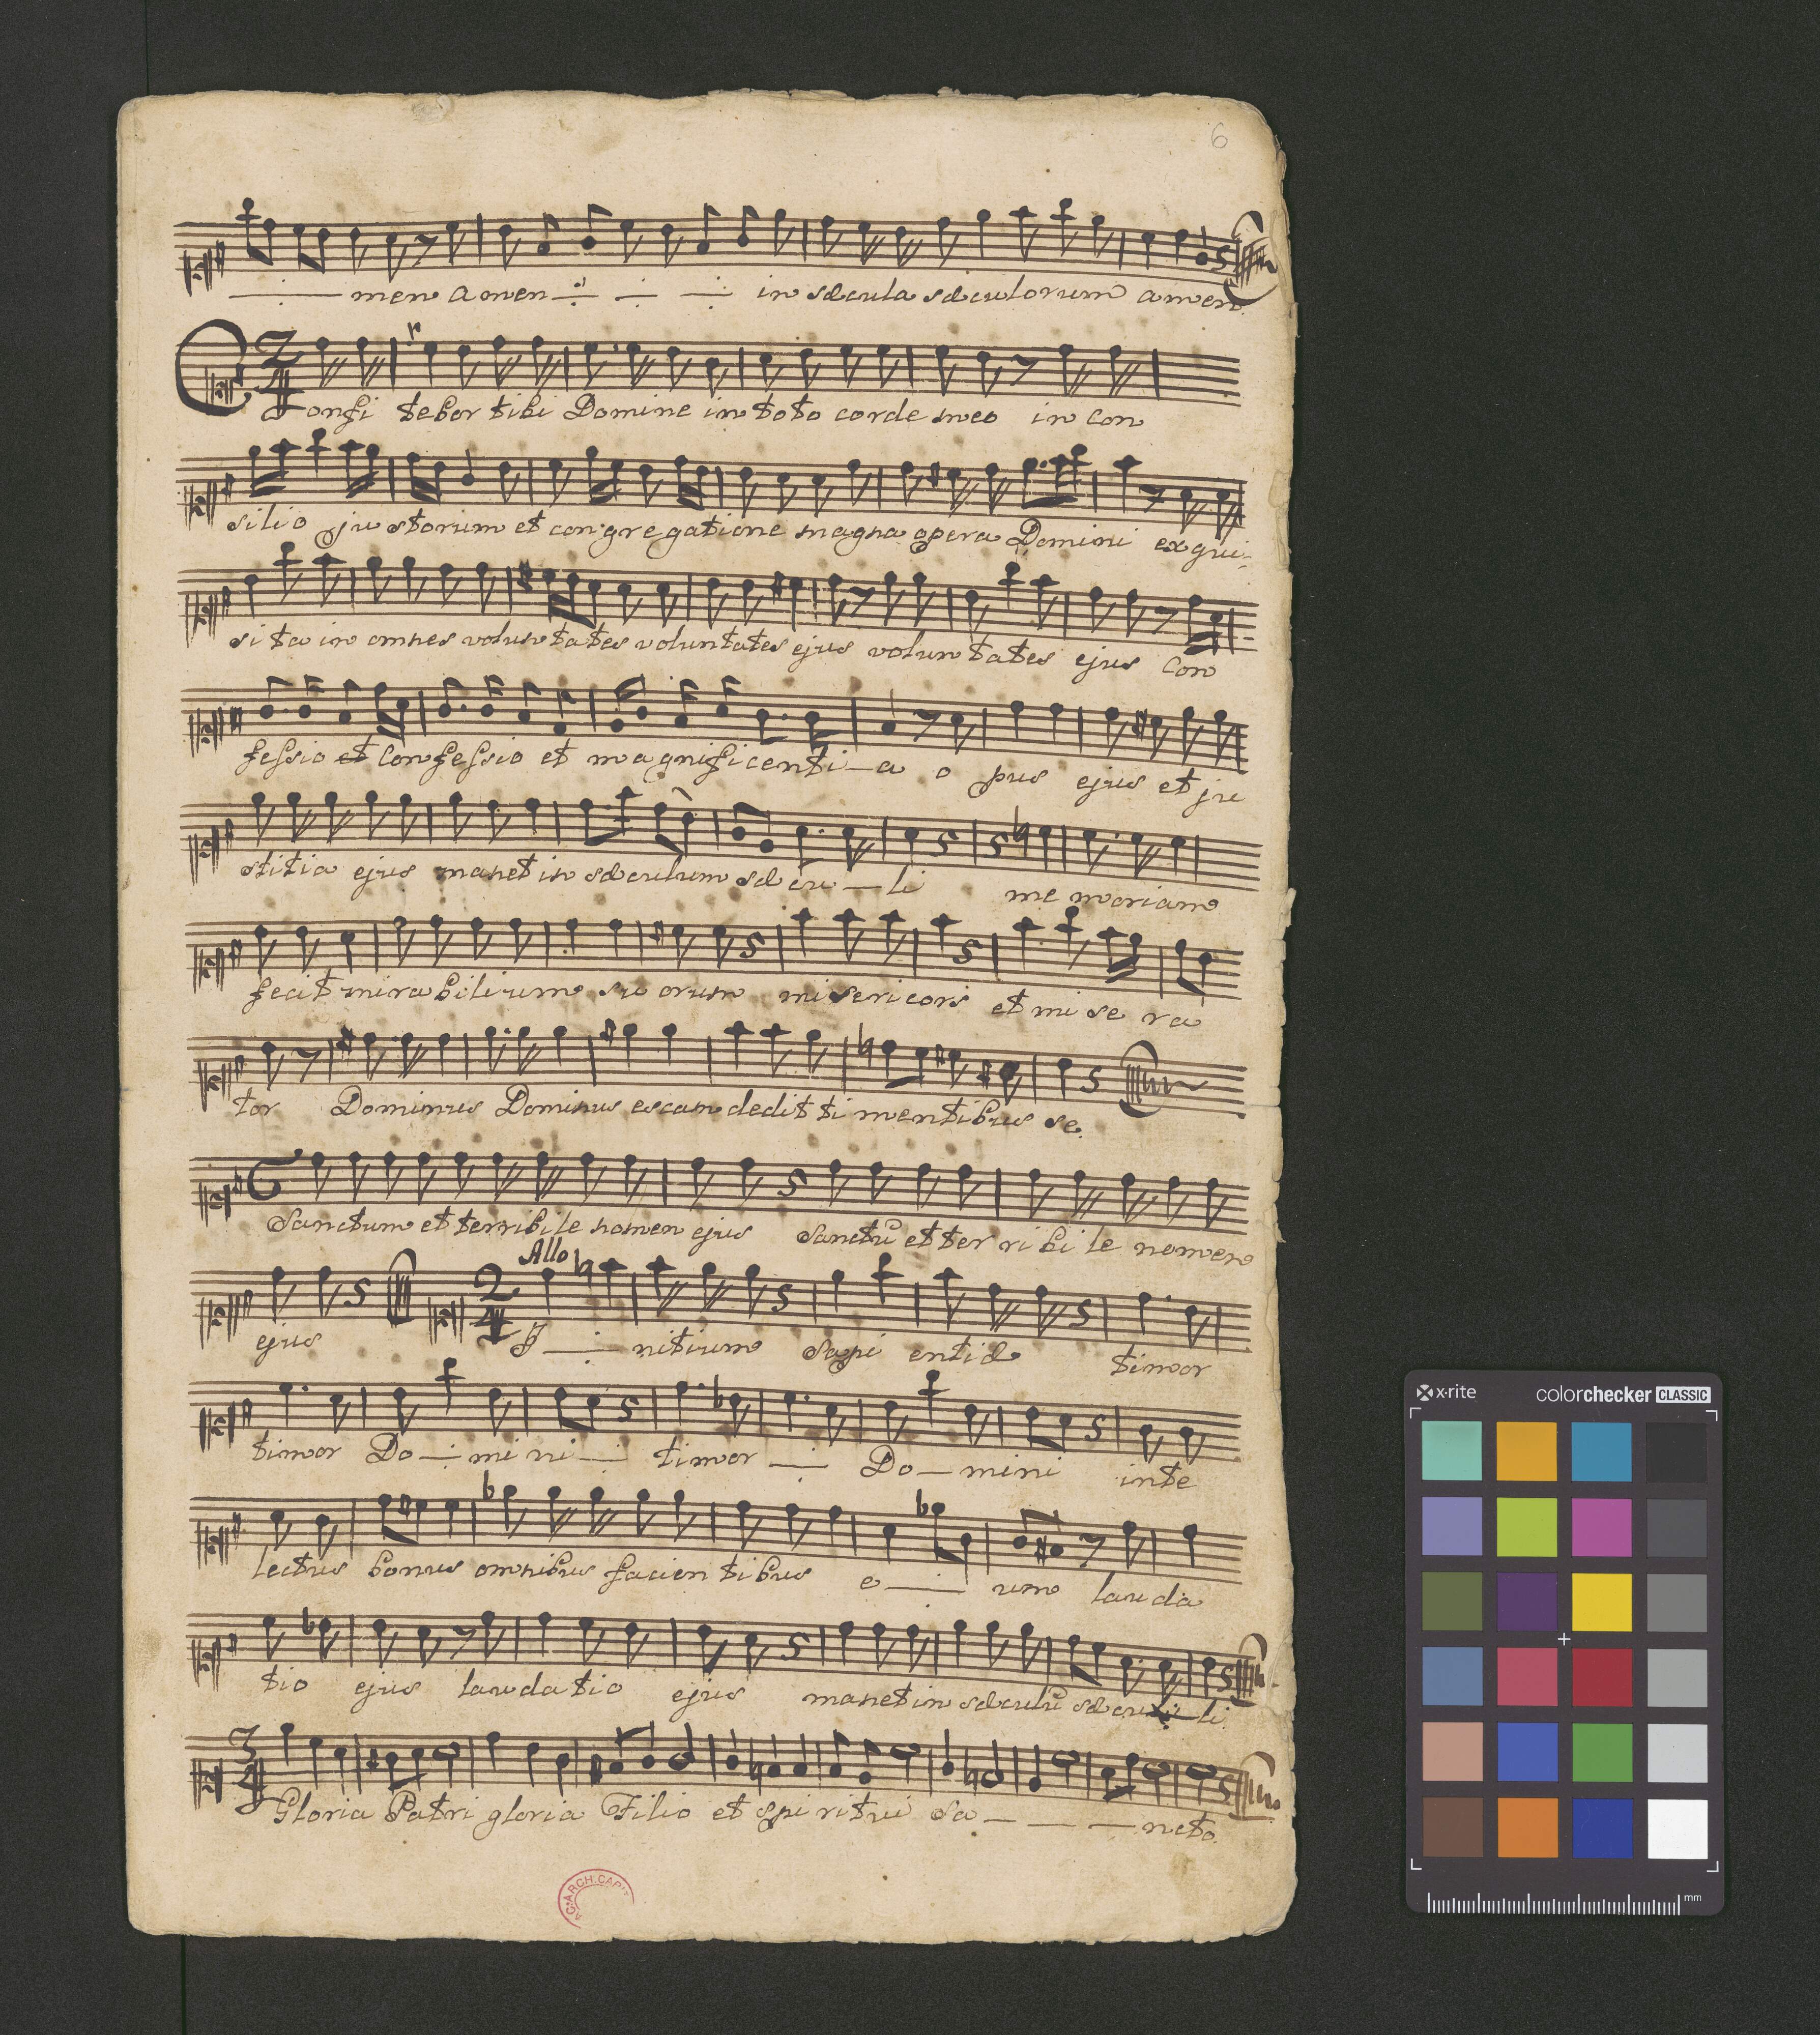 6
men amen in sæcula sæculorum amen.
3/4
Confi tebor tibi Domine in toto corde meo in con
silio ju storum et con gre gatione magna opera Domini exqui-
si ta in omnes voluntates voluntates ejus voluntates ejus con
fessio et confessio et magnificenti-a o pus ejus et ju
stitia ejus manet in sæculum sæcu-li me moriam
fecit mirabilium su orum misericors et mi se ra
tor Dominus Dominus escam dedit ti mentibus se.
Sanctum et terribile nomen ejus Sanctũ et ter ri bi le nomen
Allo
2/4
ejus I - nitium Sapi entiæ timor
timor Do - mi ni - timor - Do - mini inte
lectus bonus omnibus facien tibus e - um lau da
tio ejus laudatio ejus manet in sæculũ sæcu-li.
3/4
Gloria Patri gloria Filio et spi ritui Sa - - - ncto.
ARCH. CAP
x-rite colorchecker CLASSIC
mm